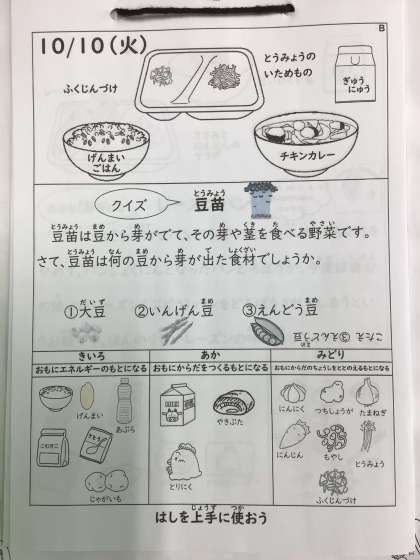 B
10/10(火)
とうみょうの
いためもの
ぎゅう
にゅう
ふくじんづけ
げんまい
ごはん
チキンカレー
クイズ
豆苗
とうみょう
豆苗は豆から芽がでて、その芽や茎を食べる野菜です。
さて、豆苗は何の豆から芽が出た食材でしょうか。
①大豆 ②いんげん豆 ③えんどう豆
こたえ ③えんどう豆
きいろ あか みどり
おもにエネルギーのもとになる おもにからだをつくるもとになる おもにからだのちょうしをととのえるもとになる
げんまい
あぶら
こむぎこ
さとう
じゃがいも
やきぶた
とりにく
にんにく
つちしょうが
たまねぎ
にんじん
もやし
とうみょう
ふくじんづけ
はしを上手に使おう